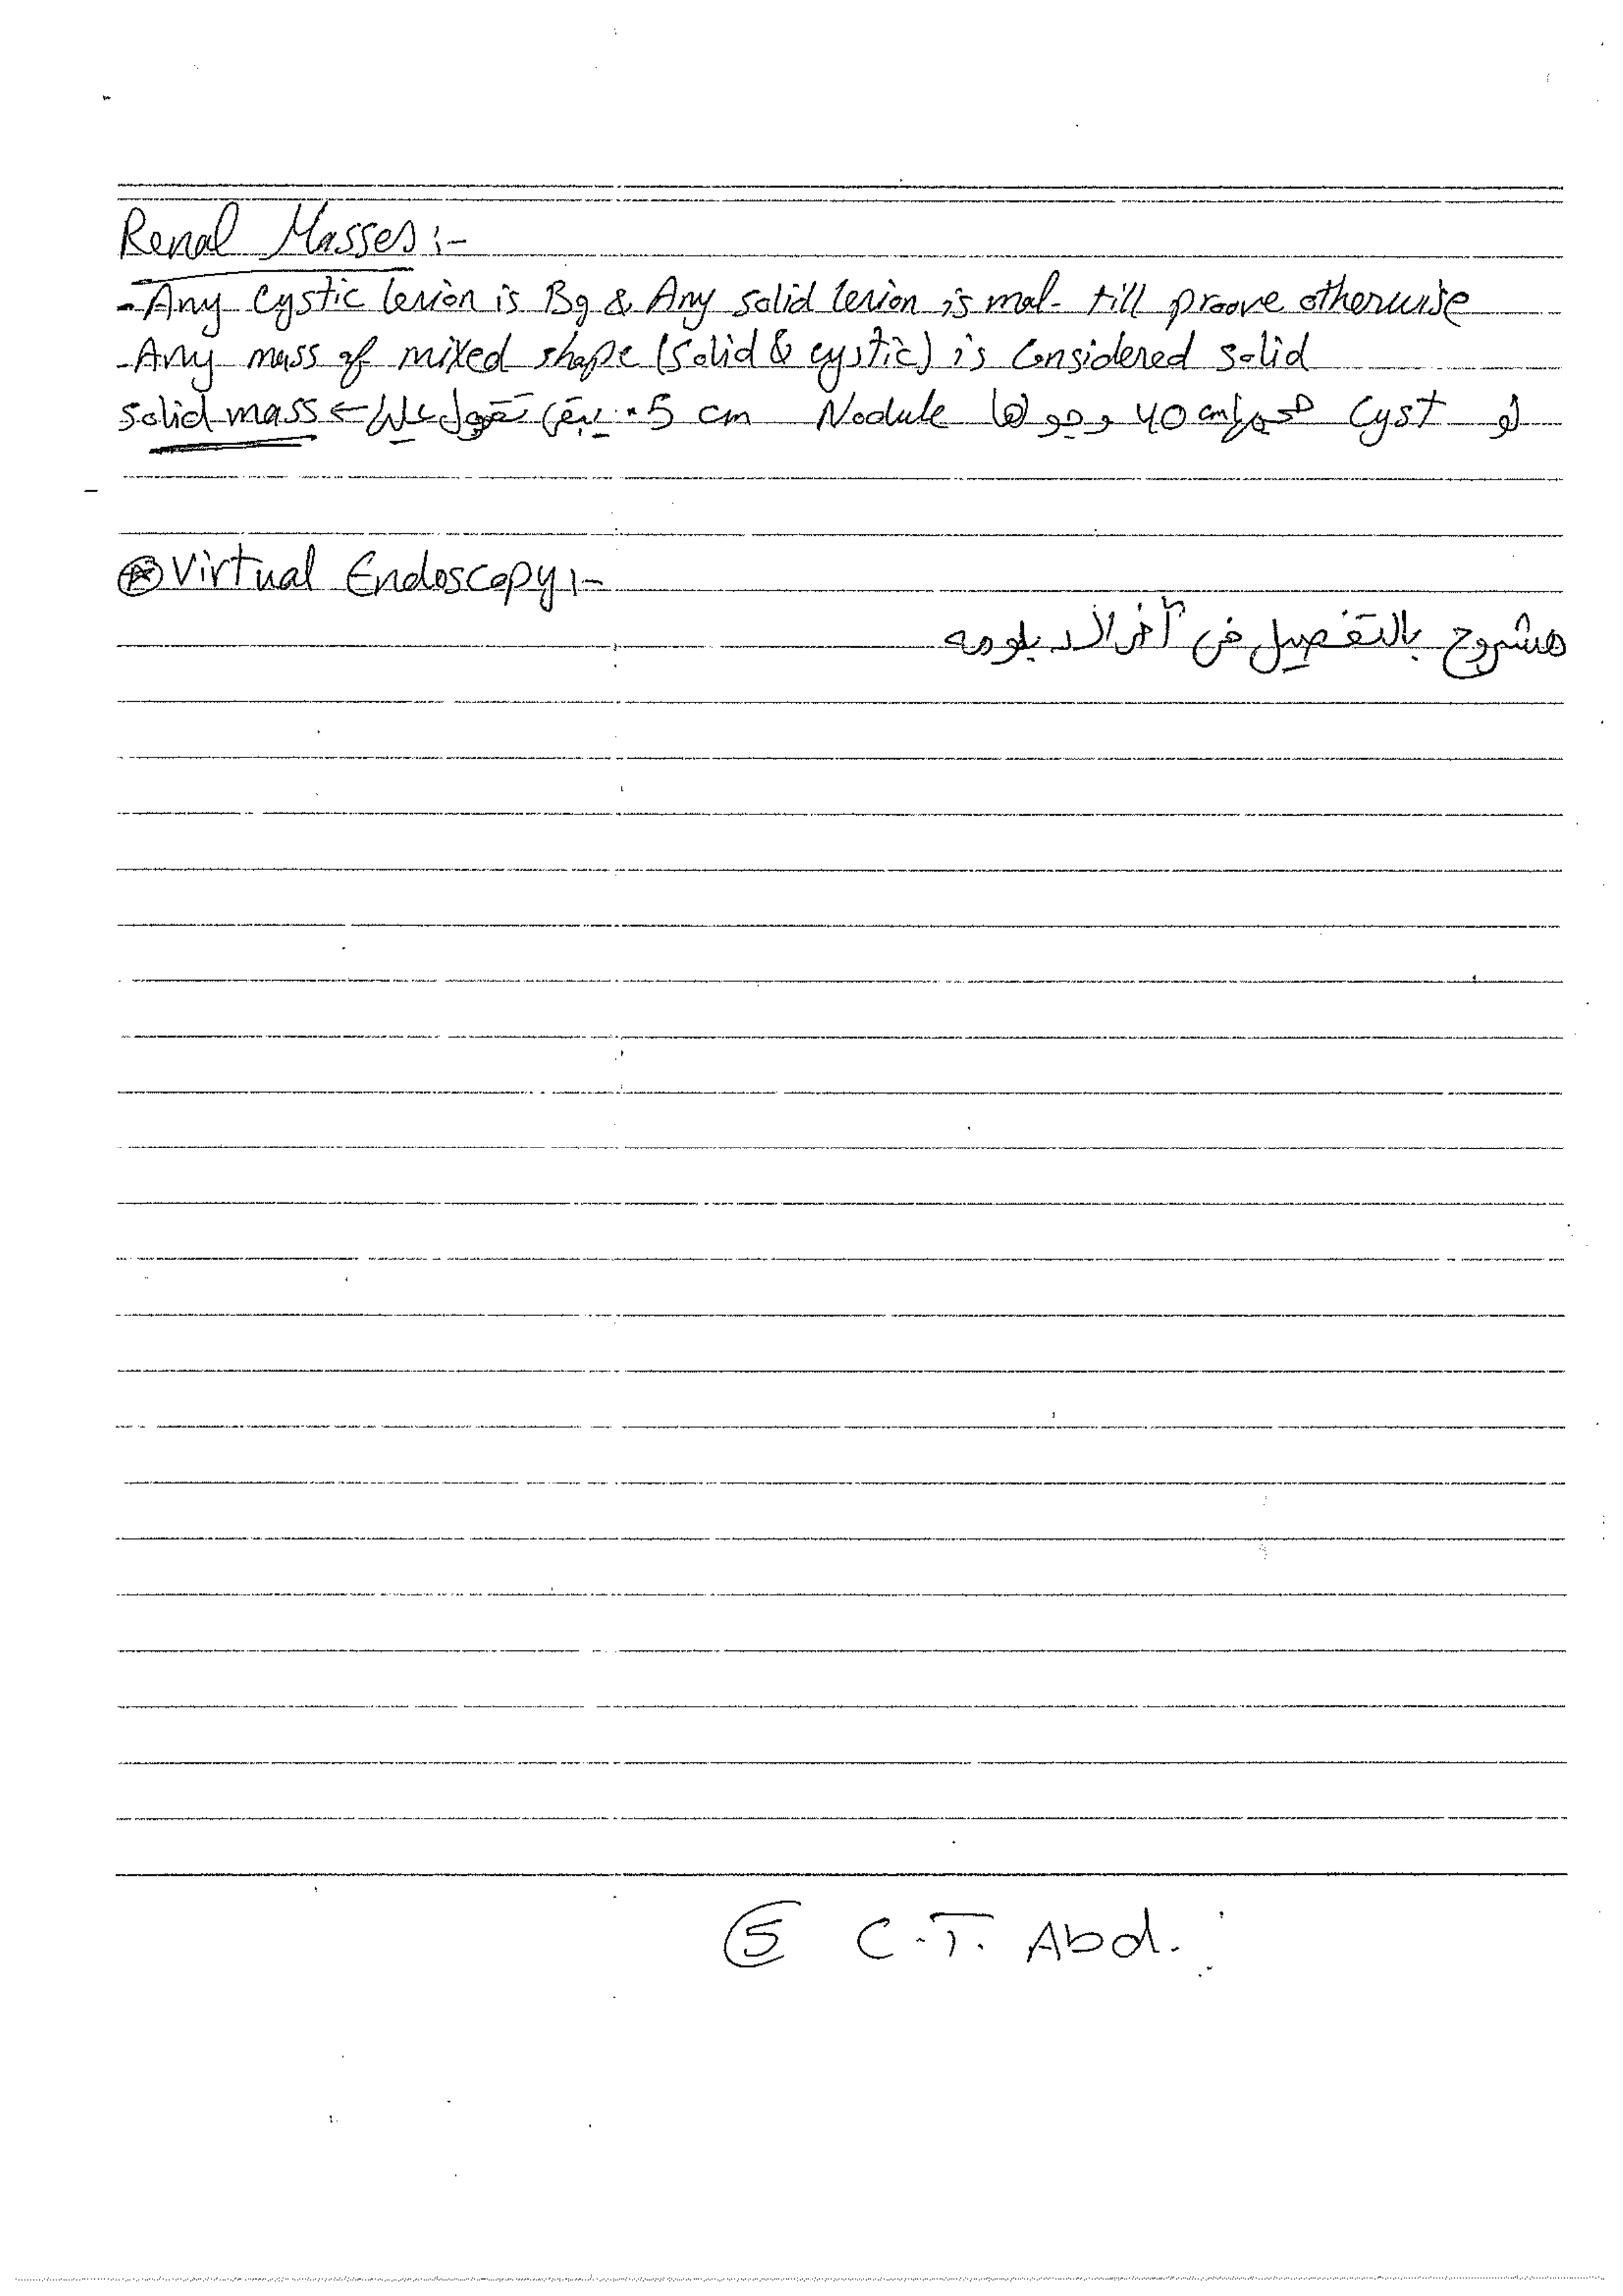 Renal Masses :-
- Any Cystic lesion is Bg & Any solid lesion is mal- till proove otherwise
- Any mass of mixed shape (Solid & cystic) is Considered solid
لو Cyst حجمها 40 cm وجوها Nodule .5 cm يبقى تقول عليها ← solid mass
Virtual Endoscopy :-
مشروح بالتفصيل فى آخر الدبلومه
5 C.T. Abd.